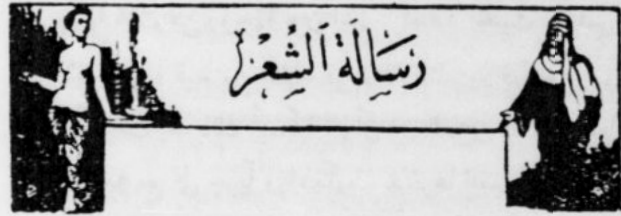 رِسَالَة اَلشِّعْرْ